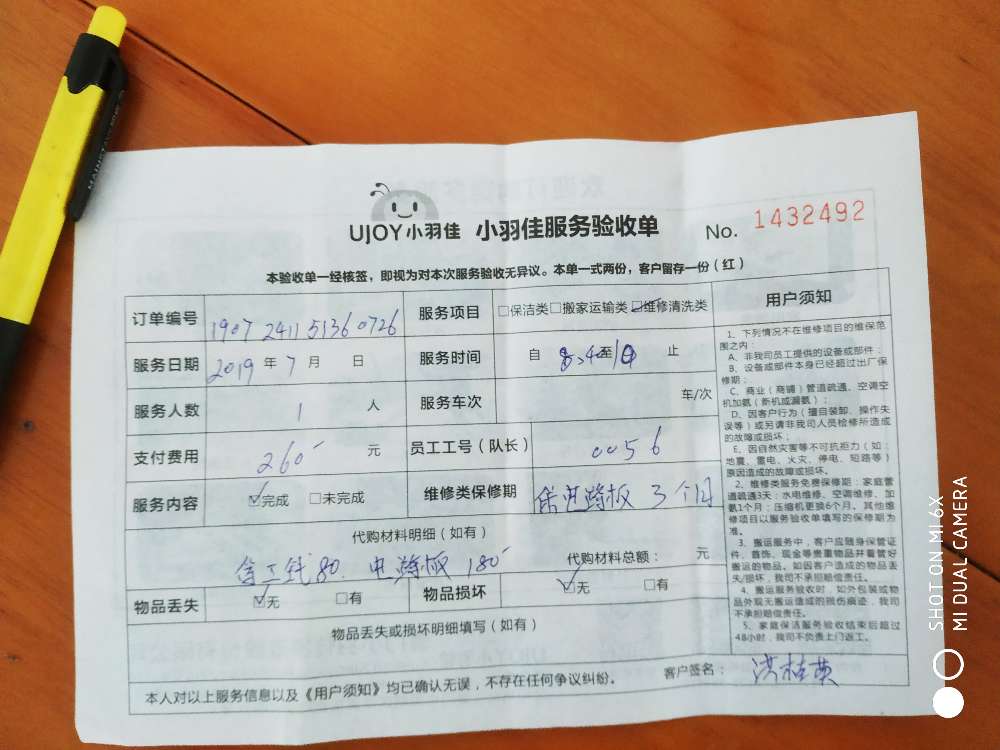 UJOY小羽佳 小羽佳服务验收单 No. 1432492
本验收单一经核签，即视为对本次服务验收无异议。本单一式两份，客户留存一份（红）
订单编号 1907 2411 5136 0726 服务项目 □保洁类□搬家运输类☑维修清洗类
服务日期 2019 年 7 月 日 服务时间 自 8:40至10 止
服务人数 1 人 服务车次 车/次
支付费用 260 元 员工工号（队长） 0056
服务内容 ☑完成 □未完成 维修类保修期 保电路板 3个月
代购材料明细（如有）
含工钱80. 电路板 180 代购材料总额： 元
物品丢失 ☑无 □有 物品损坏 ☑无 □有
物品丢失或损坏明细填写（如有）
本人对以上服务信息以及《用户须知》均已确认无误，不存在任何争议纠纷。 客户签名： 洪桂英
用户须知
1、下列情况不在维修项目的维保范
围之内：
A、非我司员工提供的设备或部件；
B、设备或部件本身已经超过出厂保
修期；
C、商业（商铺）管道疏通、空调空
机加氨（新机或漏氨）；
D、因客户行为（擅自装卸、操作失
误等）或另请非我司人员检修所造成
的故障或损坏；
E、因自然灾害等不可抗拒力（如：
地震、雷电、火灾、停电、短路等）
原因造成的故障或损坏。
2、维修类服务免费保修期：家庭管
道疏通3天；水电维修、空调维修、加
氨1个月；压缩机更换6个月。其他维
修项目以服务验收单填写的保修期为
准。
3、搬运服务中，客户应随身保管证
件、首饰、现金等贵重物品并看管好
搬运的物品。如因客户造成的物品丢
失/损坏，我司不承担赔偿责任。
4、搬运服务验收时，如外包装或物
品外观无搬运造成的损伤痕迹，我司
不承担赔偿责任。
5、家庭保洁服务验收结束后超过
48小时，我司不负责上门返工。
SHOT ON MI 6X
MI DUAL CAMERA